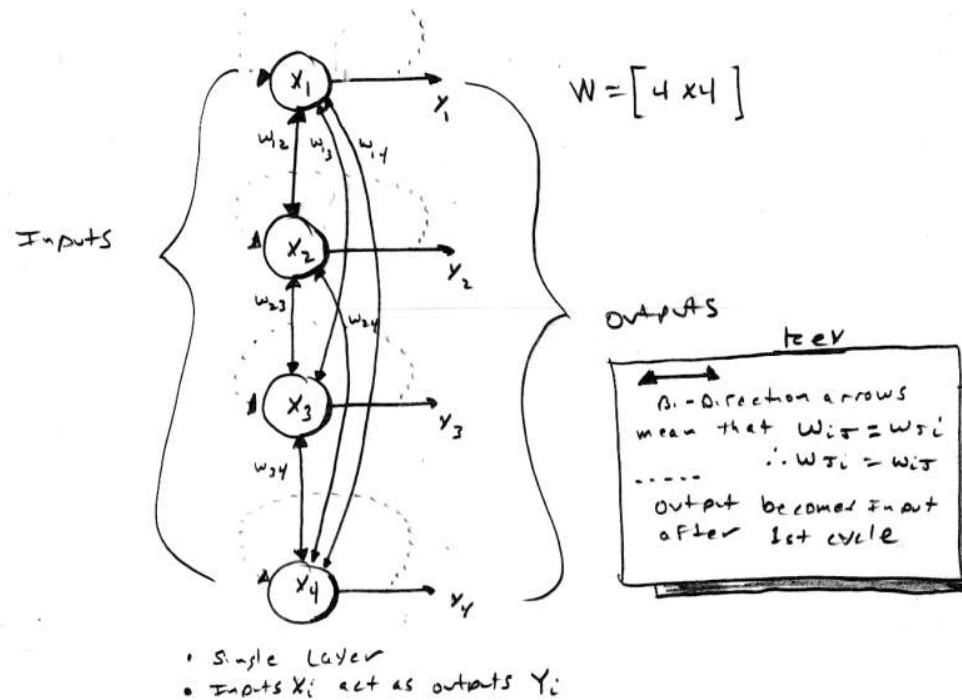 X1
Y1
W = [4 x4]
W12
W13
W14
Inputs
X2
Y2
W23
W24
outputs
X3
Y3
W34
X4
Y4
Key
Bi-Direction arrows
mean that Wij = Wji
∴ Wji = Wij
.....
output becomes Input
after 1st cycle
• Single Layer
• Inputs Xi act as outputs Yi